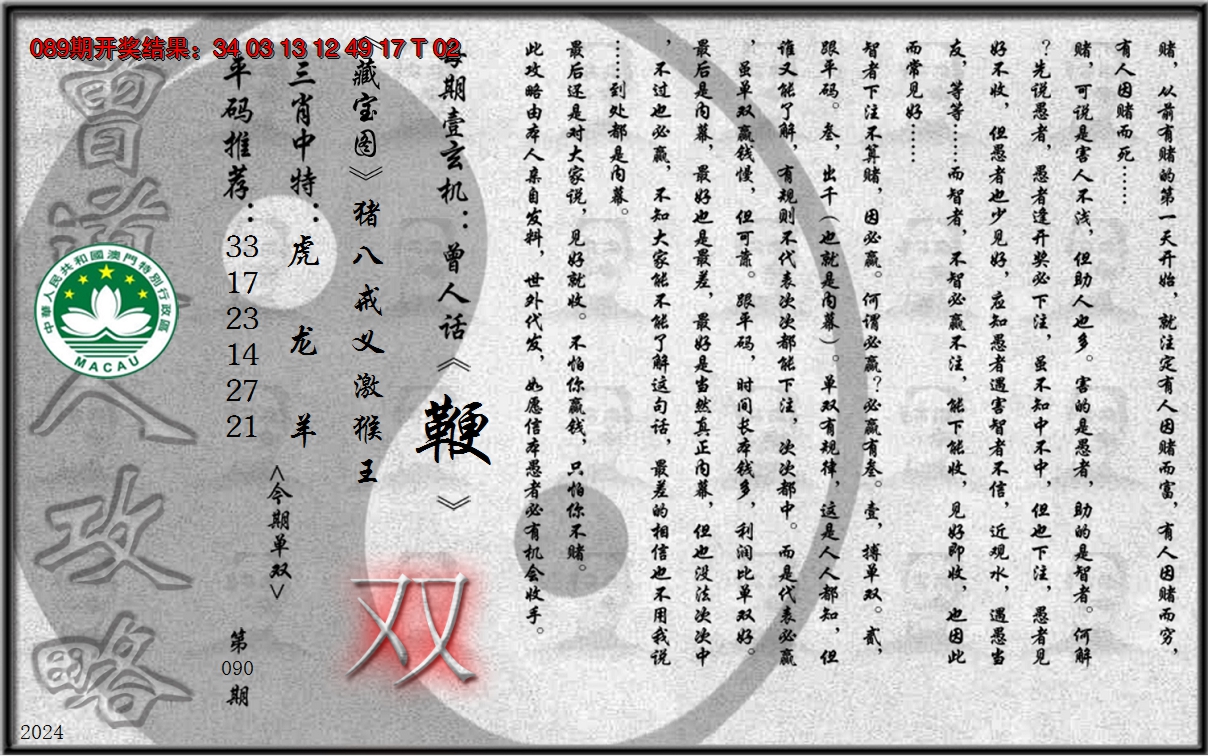 089期开奖结果：34 03 13 12 49 17 T 02
赌，从前有赌的第一天开始，就注定有人因赌而富，有人因赌而穷，
有人因赌而死……
赌，可说是害人不浅，但助人也多。害的是愚者，助的是智者。何解
？先说愚者，愚者逢开奖必下注，虽不知中不中，但也下注，愚者见
好不收，但愚者也少见好，应知愚者遇害智者不信，近观水，遇愚当
友，等等……而智者，不智必赢不注，能下能收，见好即收，也因此
而常见好……
智者下注不算赌，因必赢。何谓必赢？必赢有叁。壹，搏单双。贰，
跟平码。叁，出千（也就是内幕）。单双有规律，这是人人都知，但
谁又能了解，有规则不代表次次都能下注，次次都中。而是代表必赢
，虽单双赢钱慢，但可靠。跟平码，时间长本钱多，利润比单双好。
最后是内幕，最好也是最差，最好是当然真正内幕，但也没法次次中
，不过也必赢，不知大家能不能了解这句话，最差的相信也不用我说
……到处都是内幕。
最后还是对大家说，见好就收。不怕你赢钱，只怕你不赌。
此攻略由本人亲自发料，世外代发，如愿信本愚者必有机会收手。
每期壹玄机：曾人话《鞭》
《藏宝图》猪八戒义激猴王
双
三肖中特：虎 龙 羊
<今期单双>
平码推荐：33 17 23 14 27 21
第090期
曾道人攻略
中華人民共和國澳門特別行政區
MACAU
2024